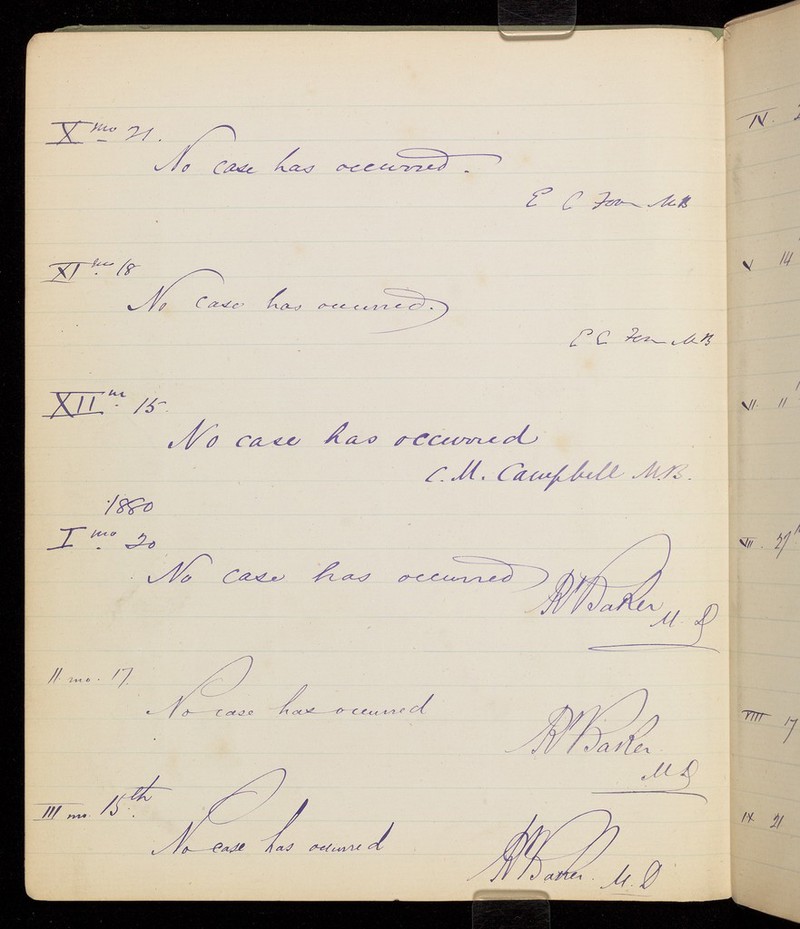 X mo 21.
No case has occurred.
E C M.B
XI mo 18
No case has occurred.
E C M.B
XII m 15
No case has occurred
C. M. Campbell M.B.
1880
I mo 20
No case has occurred
R Baker
M. D
II mo. 17
No case has occurred
R Baker
M D
III mo. 15th
No case has occurred
R Baker. M. D
IV.
V 14
VII. 11
VII. 27
VIII 17
IX 21